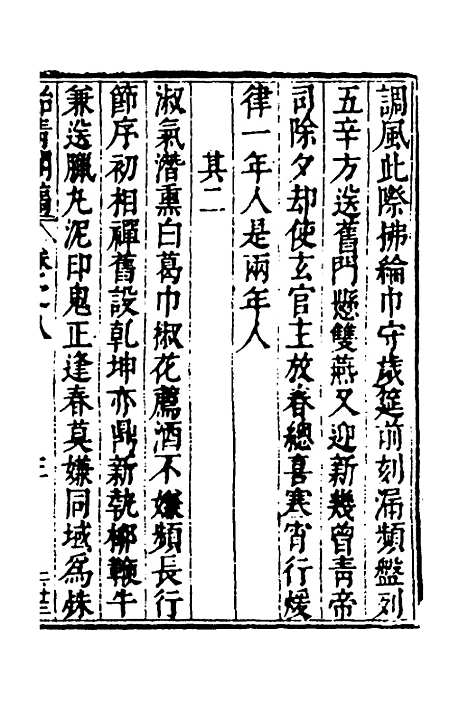 調風此際拂綸巾守歲筵前刻漏頻盤列
五辛方送舊門懸雙燕又迎新幾曾青帝
司除夕却使玄官主放春總喜寒宵行煖
律一年人是兩年人
其二
淑氣潛熏白葛巾椒花薦酒不嫌頻長行
節序初相禪舊設乾坤亦鼎新執柳鞭牛
兼送臘丸泥印鬼正逢春莫嫌同域爲殊
卷之八